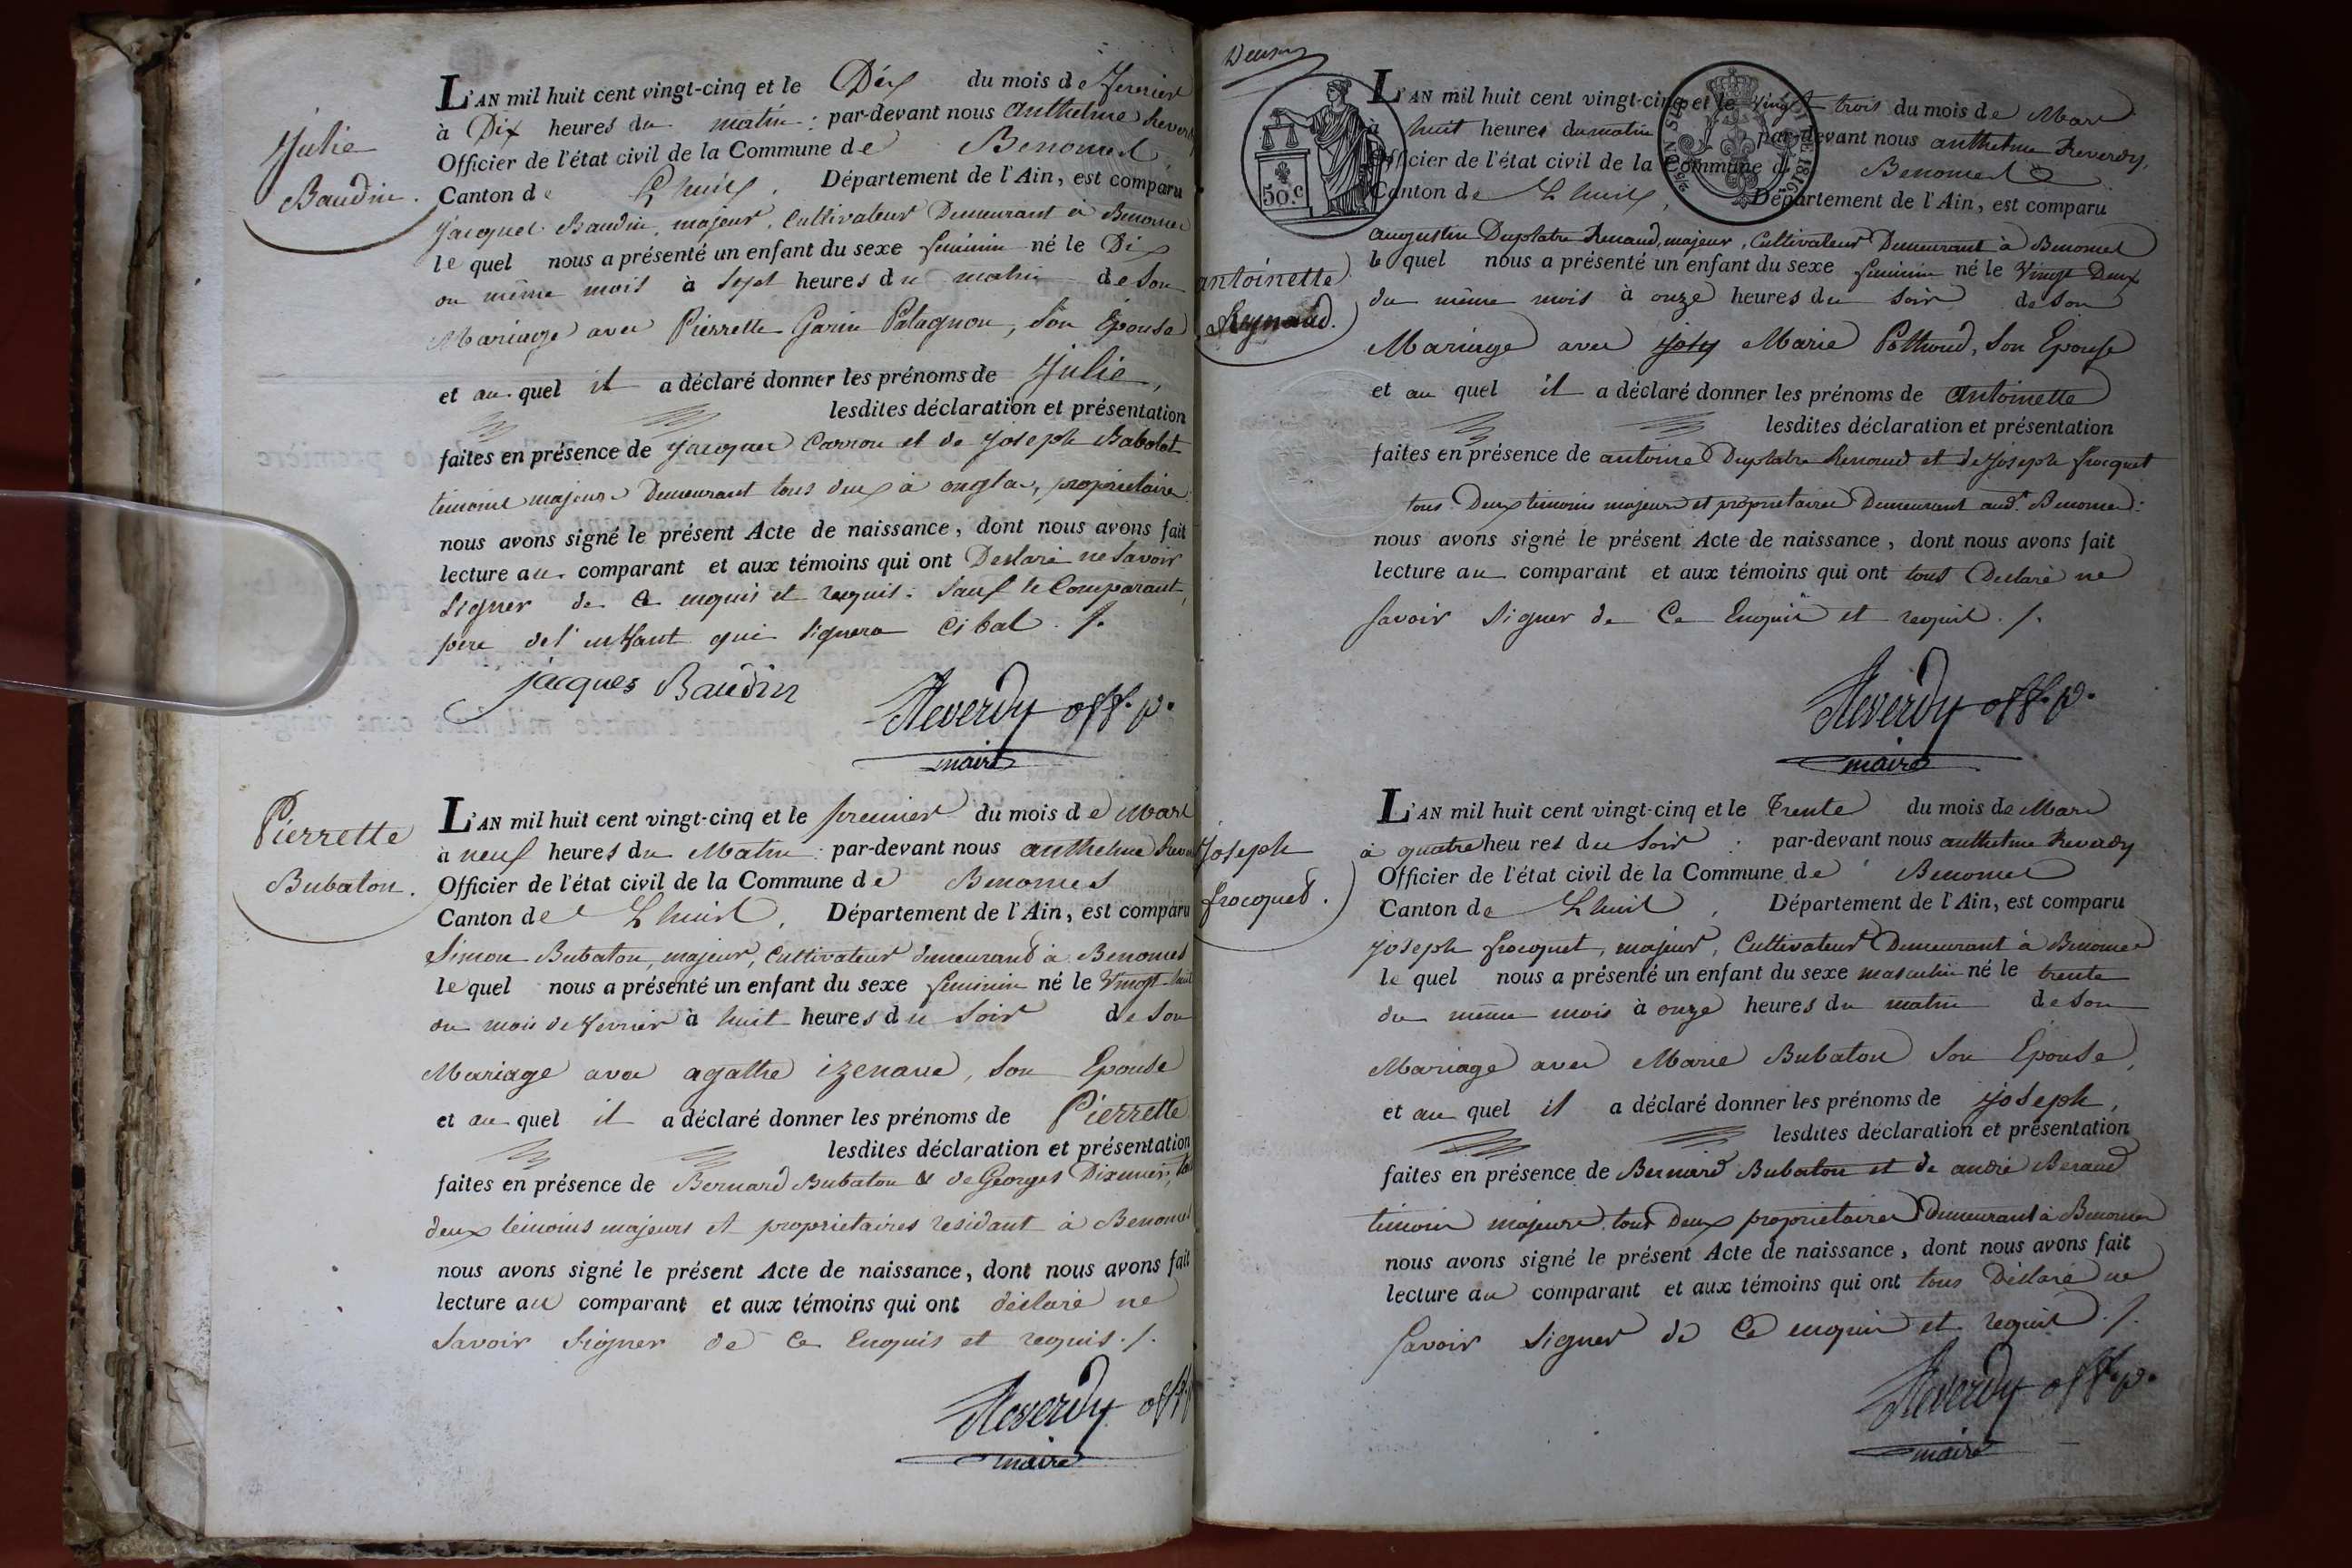 Julie
Baudin.
L'AN mil huit cent vingt-cinq et le Dix du mois de fevrier
à Dix heures du matin : par-devant nous anthelme Reverdy
Officier de l'état civil de la Commune de Benonces
Canton de Lhuis, Département de l'Ain, est comparu
Jacques Baudin, majeur, Cultivateur Demeurant à Benonces
le quel nous a présenté un enfant du sexe feminin né le Dix
du même mois à sept heures du matin de son
Mariage avec Pierrette Garin Palagnon, son Epouse
et au quel il a déclaré donner les prénoms de Julie,
lesdites déclaration et présentation
faites en présence de jacques Carron et de joseph Babolat
temoins majeurs Demeurant tous deux à onglas, proprietaires
nous avons signé le présent Acte de naissance, dont nous avons fait
lecture au comparant et aux témoins qui ont Declaré ne Savoir
Signer de Ce enquis et requis. Sauf le Comparant,
pere de l'enfant qui signera ci bas ./.
jacques Baudin
Reverdy off. p.
maire
Pierrette
Bubaton.
L'AN mil huit cent vingt-cinq et le premier du mois de Mars
à neuf heures du Matin : par-devant nous anthelme
Officier de l'état civil de la Commune de Benonces
Canton de Lhuis, Département de l'Ain, est comparu
Simon Bubaton, majeur, Cultivateur demeurant à Benonces
le quel nous a présenté un enfant du sexe feminin né le Vingt-huit
du mois de fevrier à huit heures du Soir de Son
Mariage avec agathe izenave, Son Epouse
et au quel il a déclaré donner les prénoms de Pierrette
lesdites déclaration et présentation
faites en présence de Bernard Bubaton & de Georges Dixmier,
deux témoins majeurs et proprietaires residant à Benonces
nous avons signé le présent Acte de naissance, dont nous avons fait
lecture au comparant et aux témoins qui ont déclaré ne
Savoir Signer de Ce Enquis et requis ./.
Reverdy off. p.
maire
Deux
50.c
antoinette
Reynaud.
L'AN mil huit cent vingt-cinq et le Vingt trois du mois de Mars
à huit heures du matin par-devant nous anthelme Reverdy,
Officier de l'état civil de la Commune de Benonces
Canton de Lhuis, Département de l'Ain, est comparu
augustin Duplatre Renaud, majeur, Cultivateur Demeurant à Benonces
le quel nous a présenté un enfant du sexe feminin né le Vingt Deux
du même mois à onze heures du Soir de Son
Mariage avec Marie Pothoud, Son Epouse
et au quel il a déclaré donner les prénoms de antoinette
lesdites déclaration et présentation
faites en présence de antoine Duplatre Renoud et de Joseph frocquet
tous Deux temoins majeurs et proprietaires Demeurant aud.t Benonces:
nous avons signé le présent Acte de naissance, dont nous avons fait
lecture au comparant et aux témoins qui ont tous Declaré ne
Savoir Signer de Ce Enquis et requis ./.
Reverdy off. p.
maire
Joseph
frocquet.
L'AN mil huit cent vingt-cinq et le Trente du mois de Mars
à quatre heures du Soir : par-devant nous anthelme Reverdy
Officier de l'état civil de la Commune de Benonces
Canton de Lhuis, Département de l'Ain, est comparu
joseph frocquet, majeur, Cultivateur Demeurant à Benonces
le quel nous a présenté un enfant du sexe masculin né le trente
du même mois à onze heures du matin de Son
Mariage avec Marie Bubaton Son Epouse,
et au quel il a déclaré donner les prénoms de joseph,
lesdites déclaration et présentation
faites en présence de Bernard Bubaton et de andré Beraud
témoins majeurs tous Deux proprietaires Demeurant à Benonces
nous avons signé le présent Acte de naissance, dont nous avons fait
lecture au comparant et aux témoins qui ont tous Déclaré ne
Savoir Signer de Ce enquis et requis ./.
Reverdy off. p.
maire